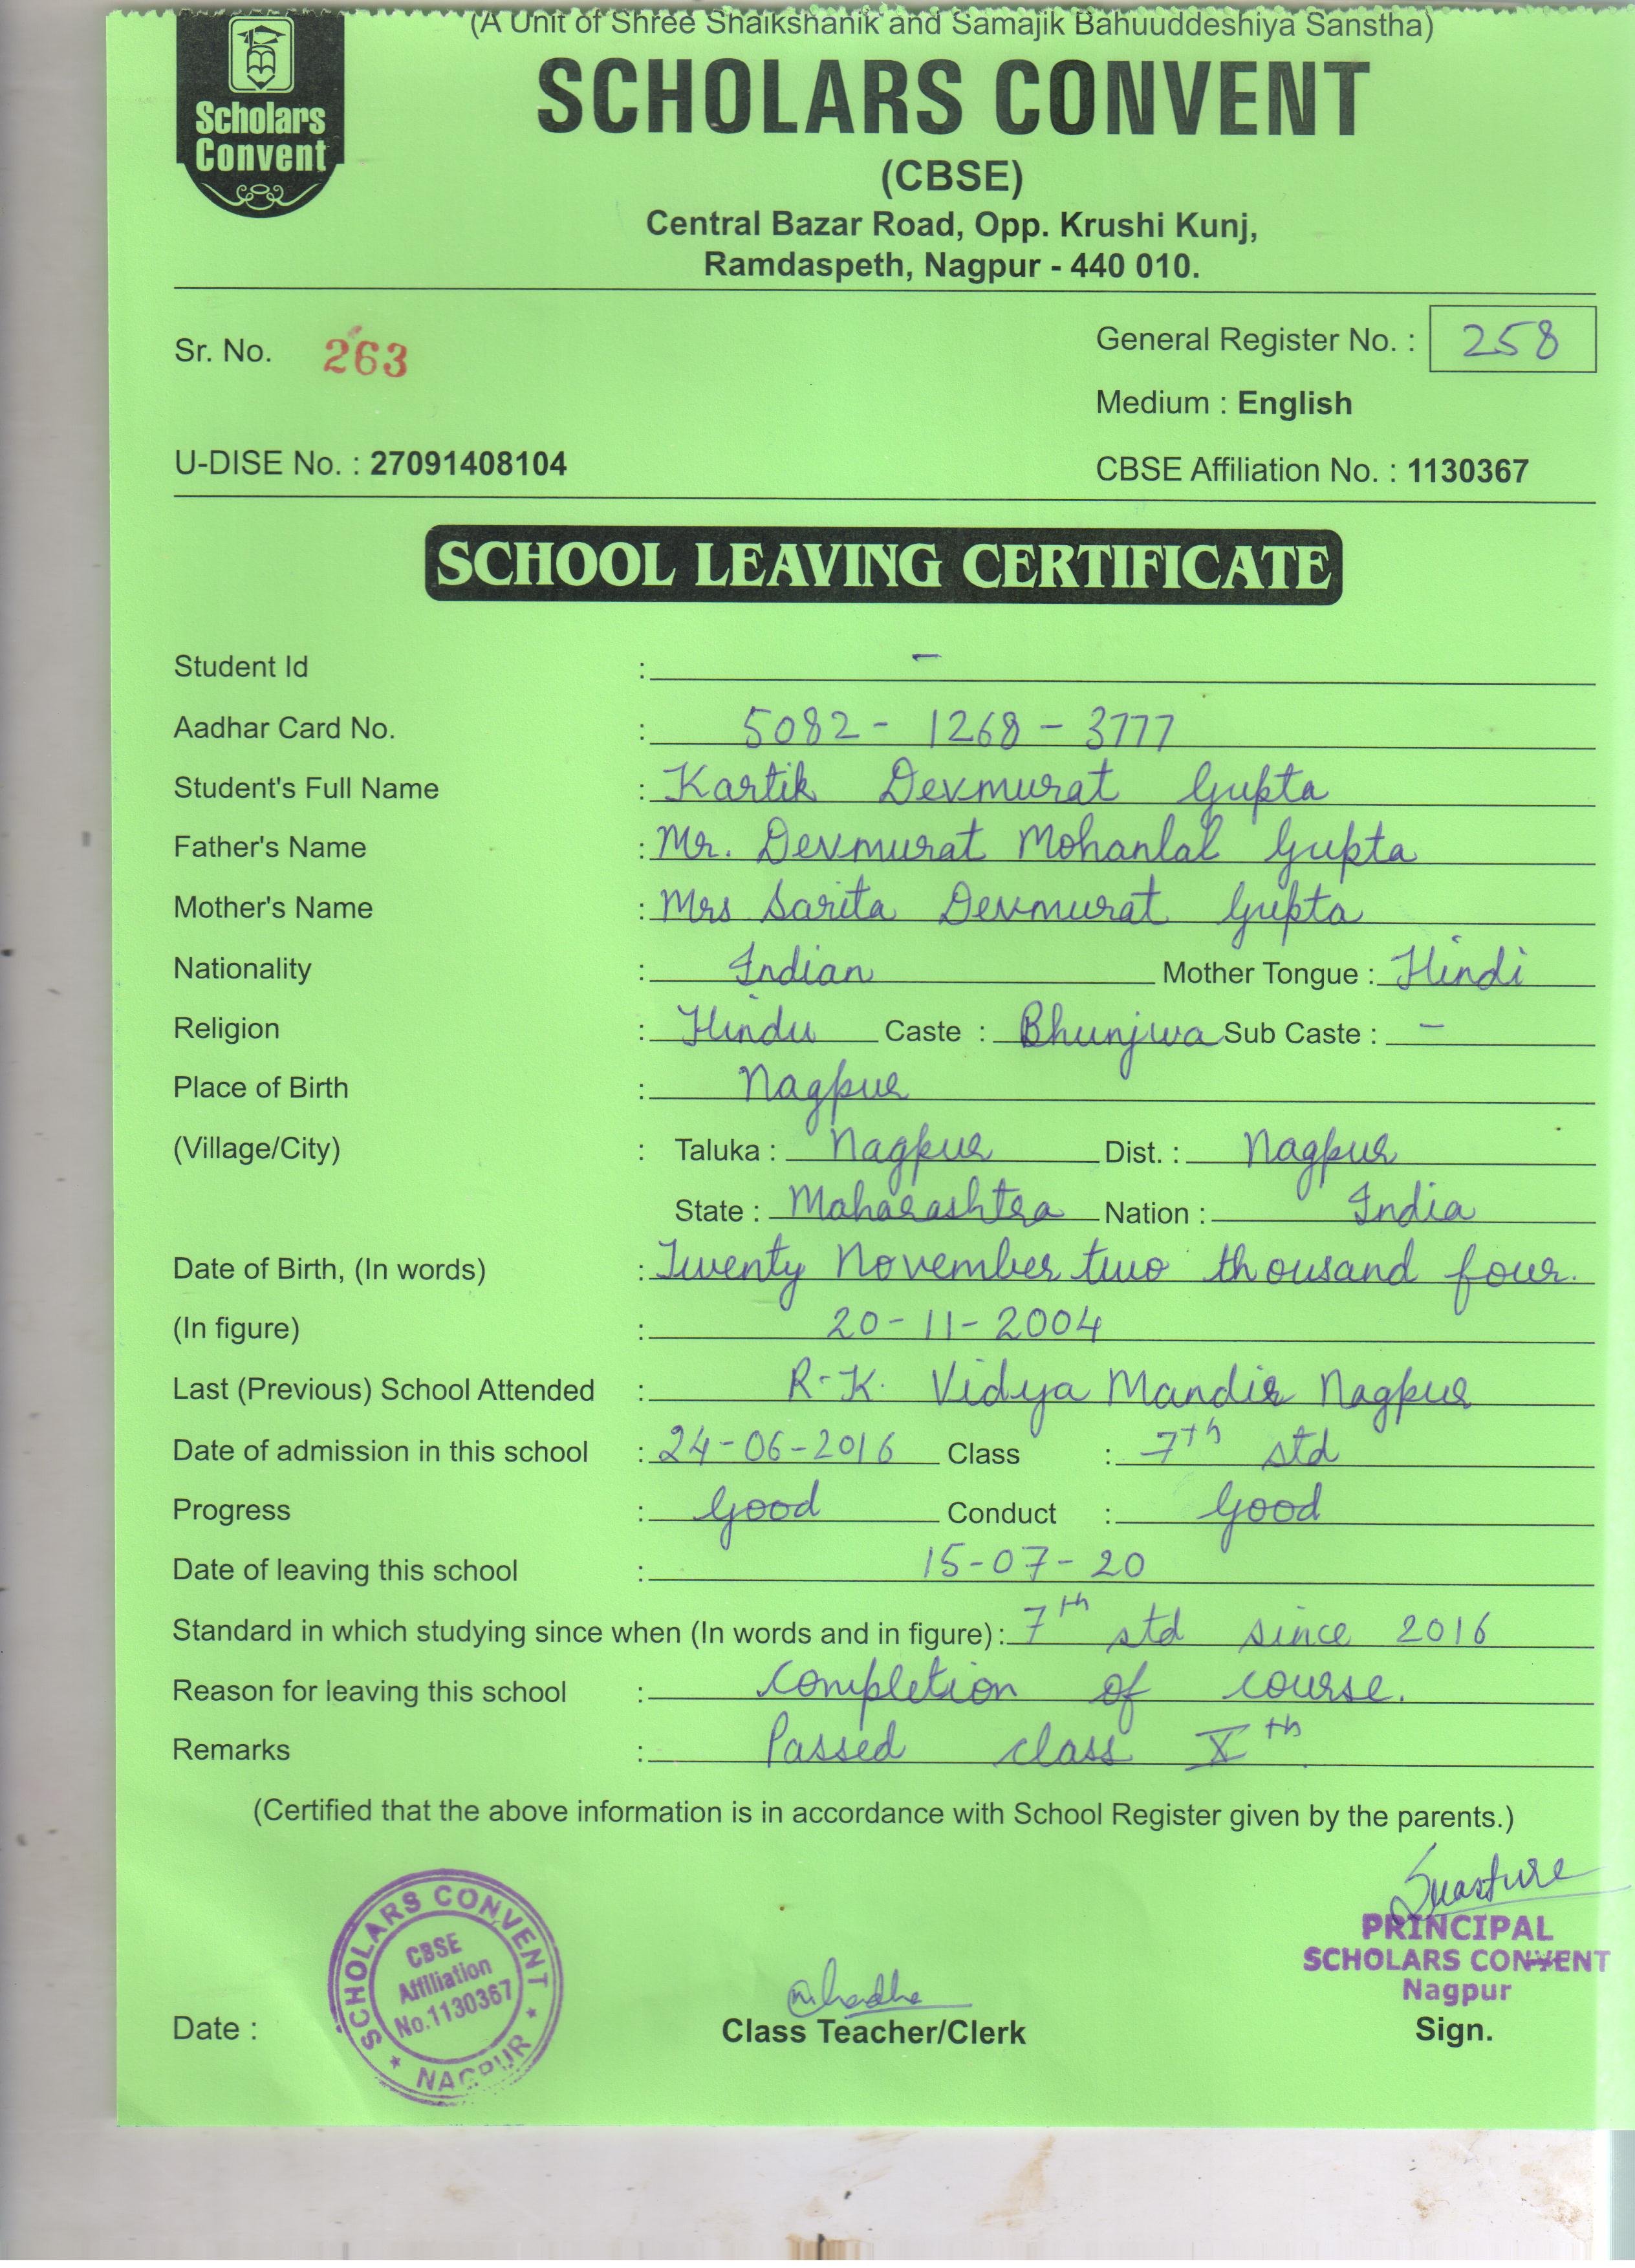 (A Unit of Shree Shaikshanik and Samajik Bahuuddeshiya Sanstha)
Scholars
Convent
SCHOLARS CONVENT
(CBSE)
Central Bazar Road, Opp. Krushi Kunj,
Ramdaspeth, Nagpur - 440 010.
Sr. No. 263
General Register No. : 258
Medium : English
U-DISE No. : 27091408104
CBSE Affiliation No. : 1130367
SCHOOL LEAVING CERTIFICATE
Student Id : -
Aadhar Card No. : 5082 - 1268 - 3777
Student's Full Name : Kartik Devmurat Gupta
Father's Name : Mr. Devmurat Mohanlal Gupta
Mother's Name : Mrs Sarita Devmurat Gupta
Nationality : Indian Mother Tongue : Hindi
Religion : Hindu Caste : Bhunjwa Sub Caste : -
Place of Birth : Nagpur
(Village/City) : Taluka : Nagpur Dist. : Nagpur
State : Maharashtra Nation : India
Date of Birth, (In words) : Twenty November two thousand four.
(In figure) : 20-11-2004
Last (Previous) School Attended : R-K. Vidya Mandir Nagpur
Date of admission in this school : 24-06-2016 Class : 7th std
Progress : Good Conduct : Good
Date of leaving this school : 15-07-20
Standard in which studying since when (In words and in figure) : 7th std since 2016
Reason for leaving this school : Completion of course.
Remarks : Passed class Xth
(Certified that the above information is in accordance with School Register given by the parents.)
SCHOLARS CONVENT
CBSE
Affiliation
No.1130367
NAGPUR
PRINCIPAL
SCHOLARS CONVENT
Nagpur
Date :
Class Teacher/Clerk
Sign.